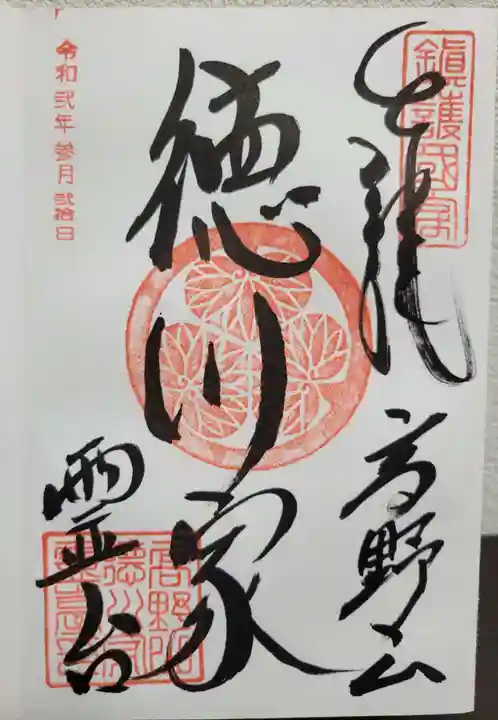 奉拝
高野山
徳川家
霊台
令和弐年参月弐拾日
鎮護国家
高野山
徳川家
霊台